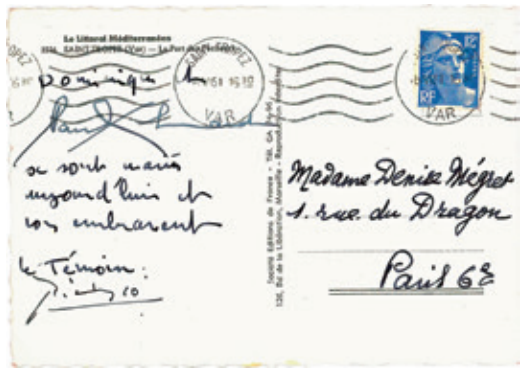 Le Littoral Méditerranéen
SAINT-TROPEZ (Var) — Le Port des Pêcheurs
SAINT-TROPEZ
VAR
16 H
RF
Dominique &
Paul
se sont mariés
aujourd'hui et
vous embrassent
le Témoin :
Picasso
Société Editions de France - Tél.
120, Bd de la Libération, Marseille - Reproduction interdite
Madame Denise Mégret
1. rue du Dragon
Paris 6e